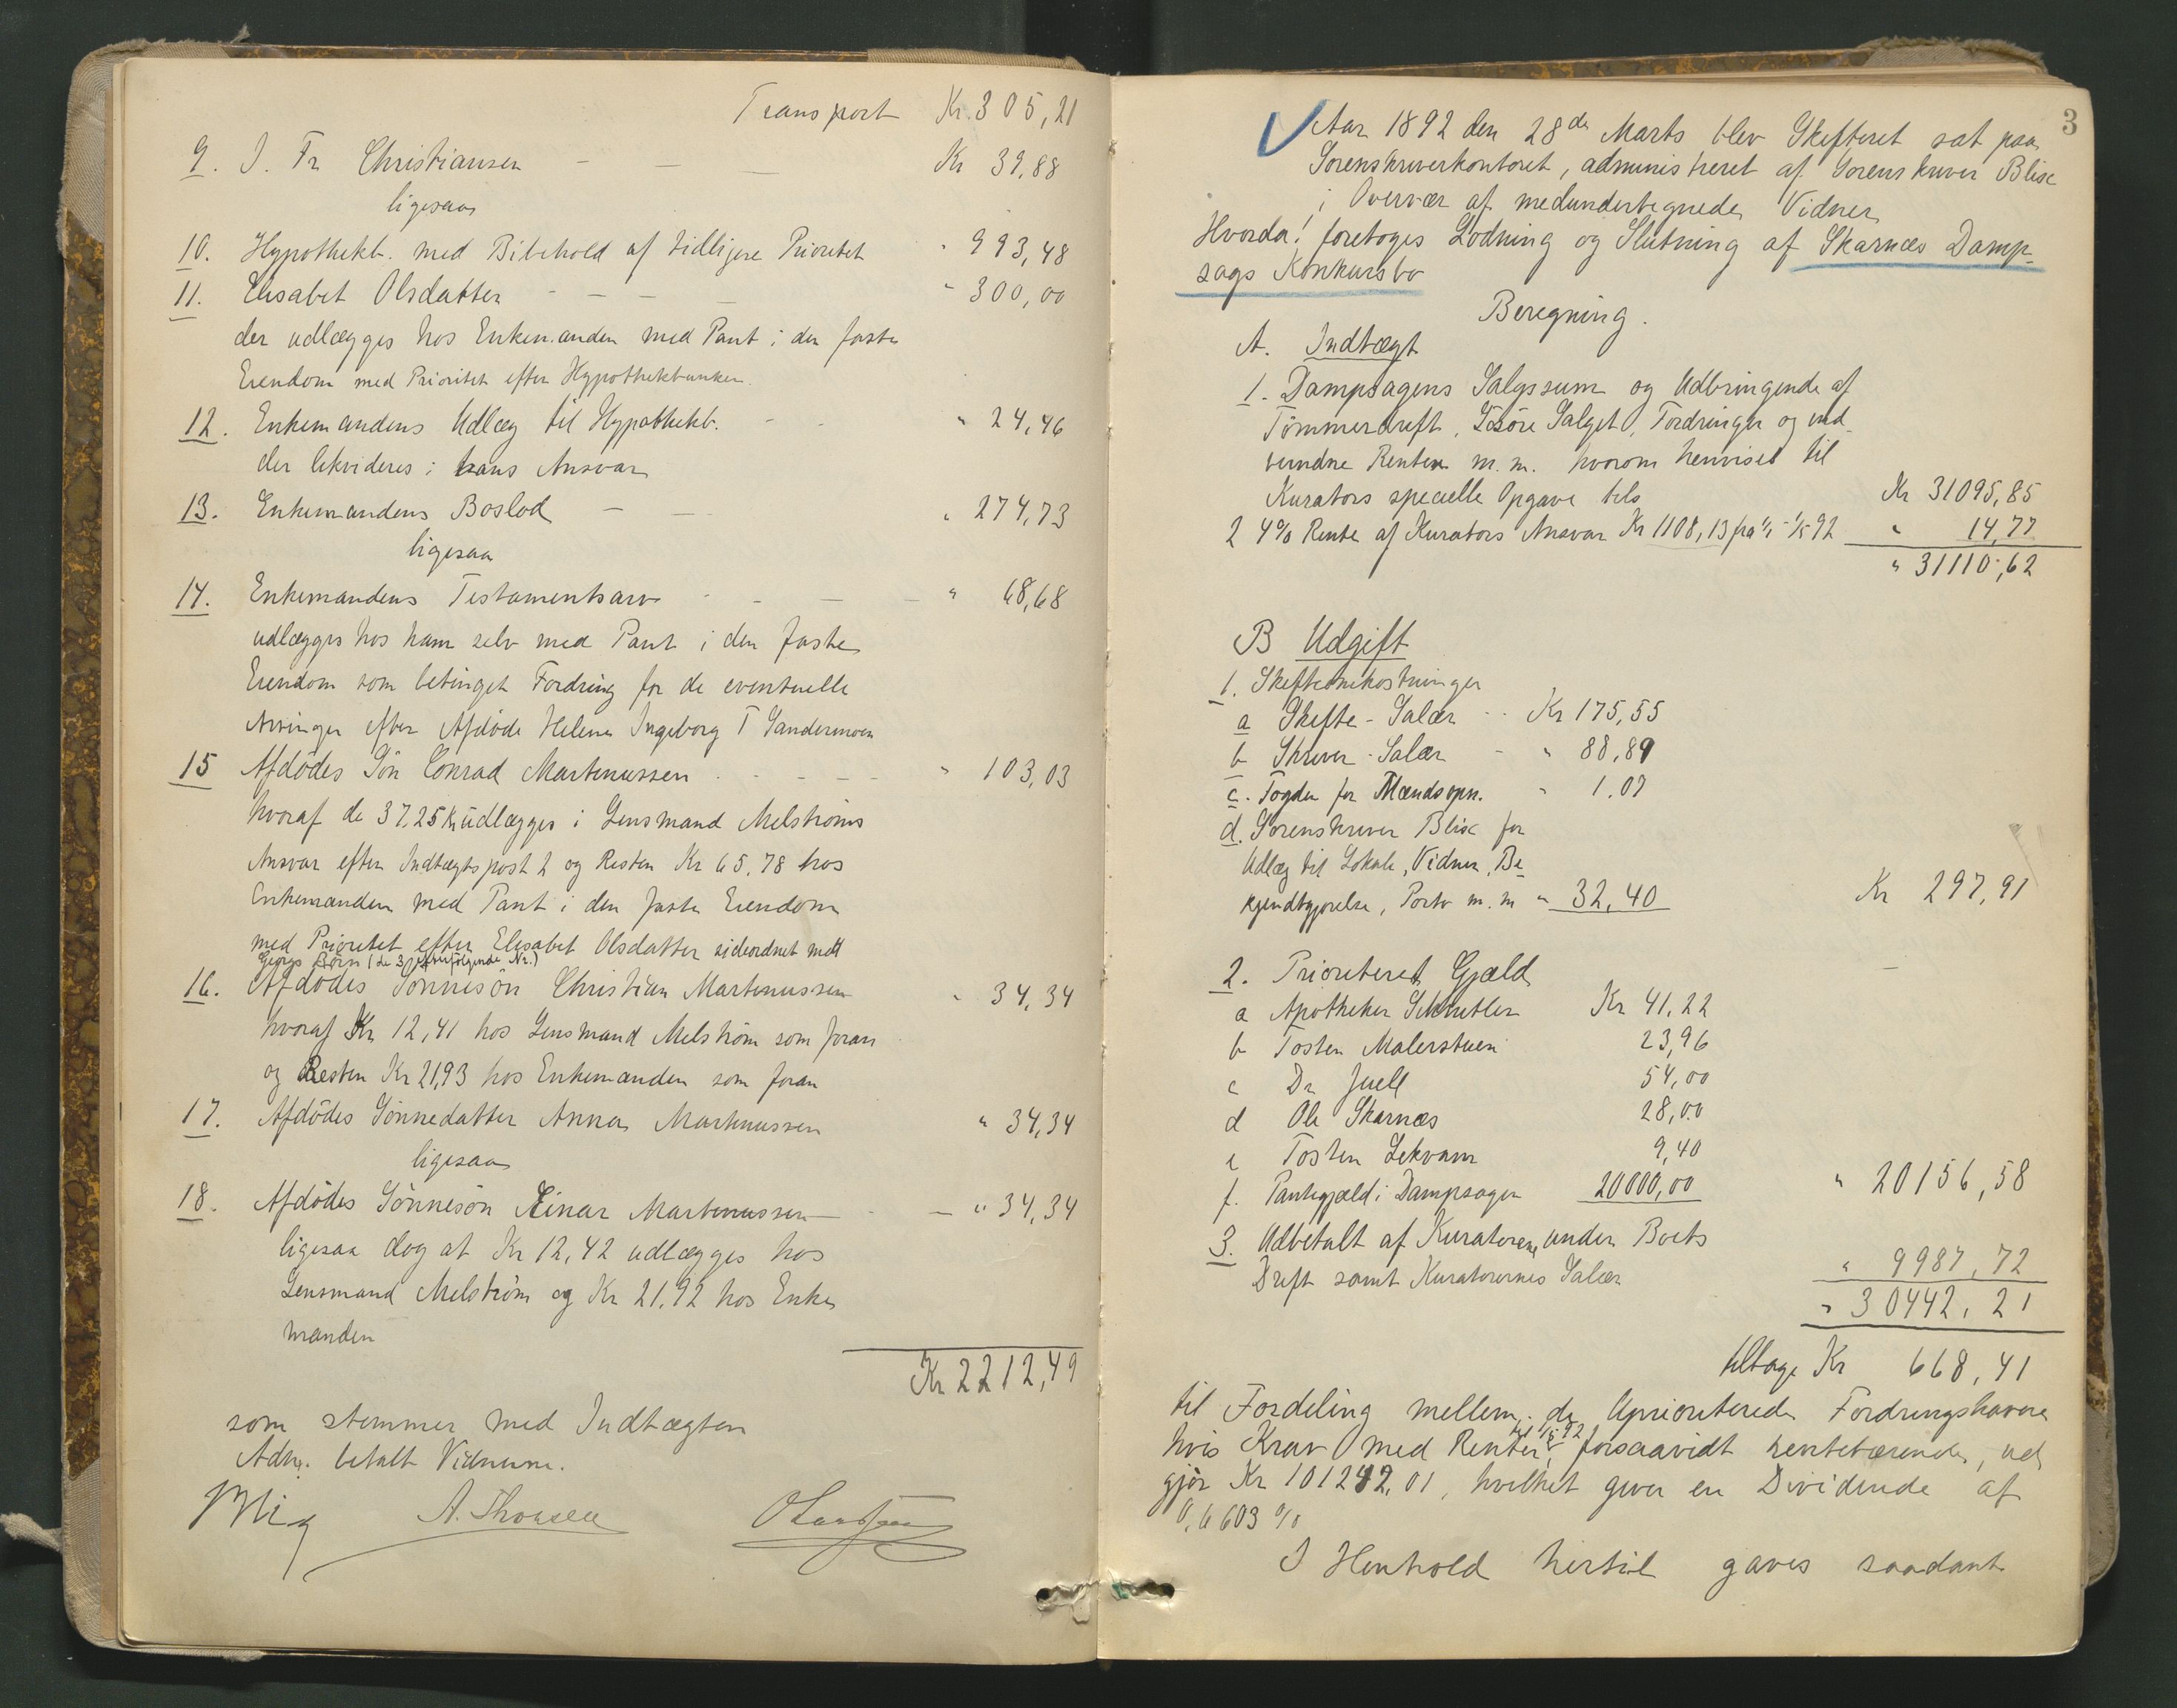 Transport Kr. 305,21
9. J. Fr Christiansen - — — Kr 39,88
ligesaa
10. Hypothekb. med Bibehold af tidligere Prioritet " 993,48
11. Elisabet Olsdatter - — — — " 300,00
der udlægges hos Enkemanden med Pant i den faste
Eiendom med Prioritet efter Hypothekbanken.
12. Enkemandens Udlæg til Hypothekb. - - " 24,46
der likvideres i hans Ansvar
13. Enkemandens Boslod — — " 274,73
ligesaa
14. Enkemandens Testamentsarv - - — — " 68,68
udlægges hos ham selv med Pant i den faste
Eiendom som betinget Fordring for de eventuelle
Arvinger efter Afdøde Helene Ingeborg T Sandermoen
15 Afdødes Søn Conrad Martinussen - - - - " 103,03
hvoraf de 37,25 Kr udlægges i Lensmand Melstrøms
Ansvar efter Indtægtspost 2 og Resten Kr 65,78 hos
Enkemanden med Pant i den faste Eiendom
med Prioritet efter Elisabet Olsdatter sideordnet med
Georgs Børn (de 3 efterfølgende Nr.)
16. Afdødes Sønnesøn Christian Martinussen " 34,34
hvoraf Kr 12,41 hos Lensmand Melstrøm som foran
og Resten Kr 21,93 hos Enkemanden som foran
17. Afdødes Sønnedatter Anna Martinussen " 34,34
ligesaa
18. Afdødes Sønnesøn Einar Martinussen — - — " 34,34
ligesaa dog at Kr 12,42 udlægges hos
Lensmand Melstrøm og Kr 21,92 hos Enke
manden
Kr 2212,49
som stemmer med Indtægten
Adm. betalt Vidnerne.
A. Thonsen
3
Aar 1892 den 28de Marts blev Skifteret sat paa
Sorenskriverkontoret, administreret af Sorenskriver Blix
i Overvær af medundertegnede Vidner
Hvorda! foretoges Lodning og Slutning af Skarnæs Damp-
sags Konkursbo
Beregning.
A. Indtægt
1. Dampsagens Salgssum og Udbringende af
Tømmerdrift, Løsøre Salget, Fordringer og ind
vundne Renter m.m. hvorom henvises til
Kurators specielle Opgave tils Kr 31095,85
2 4% Rente af Kurators Ansvar Kr 1108,13 fra 1/1 - 1/5 92 " 14,77
" 31110,62
B Udgift
1. Skifteomkostninger
a Skifte-Salær - - Kr 175,55
b Skriver-Salær - " 88,89
c. Fogden for Mandsopn. " 1.07
d. Sorenskriver Blix for
Udlæg til Lokale, Vidner, Be-
kjendtgjørelse, Porto m.m " 32,40 Kr 297,91
2. Prioriteret Gjæld
a Apotheker Schnitler Kr 41,22
b Tosten Malerstuen 23,96
c Dr Juell 54,00
d Ole Skarnæs 28,00
e Tosten Lekvam 9,40
f. Pantegjæld i Dampsagen 20000,00 " 20156,58
3. Udbetalt af Kuratorene under Boets
Drift samt Kuratorernes Salær " 9987,72
" 30442,21
tilbage Kr 668,41
til Fordeling mellem de Uprioriterede Fordringshavere
hvis Krav med Renter til 1/5 92 forsaavidt rentebærende, ud
gjør Kr 101242,01, hvilket giver en Dividende af
0,6603 %
I Henhold hertil gaves saadant